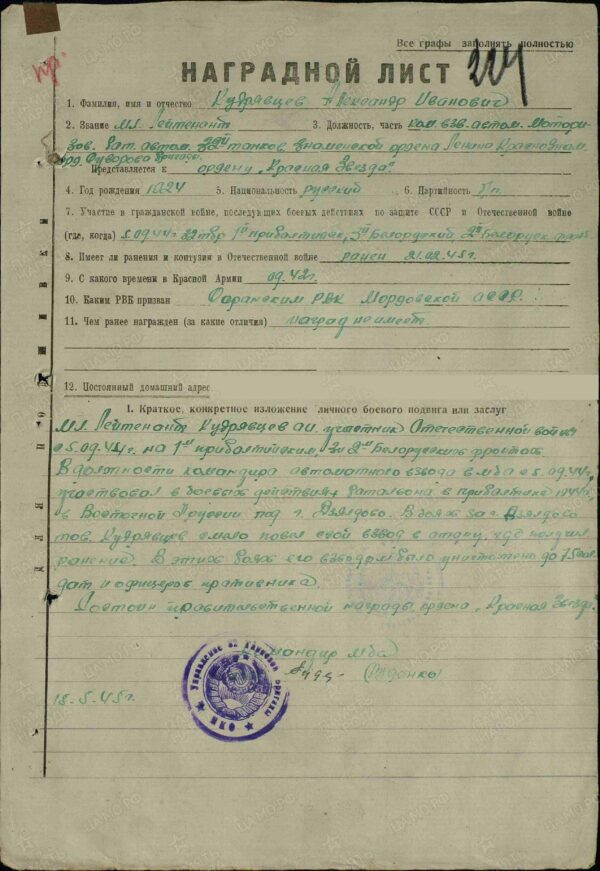 Все графы заполнять полностью
пр.
НАГРАДНОЙ ЛИСТ
1. Фамилия, имя и отчество Кудрявцев Александр Иванович
2. Звание мл. лейтенант 3. Должность, часть ком. взв. автом. мотори-
зов. бат. автом. 32й танков. Знаменской ордена Ленина Краснознам.
орд. Суворова бригады
Представляется к ордену "Красная Звезда"
4. Год рождения 1924 5. Национальность русский 6. Партийность б/п.
7. Участие в гражданской войне, последующих боевых действиях по защите СССР и Отечественной войне
(где, когда) с 5.09.44г. 32 тбр 1й прибалтийск, 3й Белорусский 2й Белорусск.
8. Имеет ли ранения и контузии в Отечественной войне ранен 21.02.45г.
9. С какого времени в Красной Армии 09.42г.
10. Каким РВК призван Саранским РВК Мордовской АССР.
11. Чем ранее награжден (за какие отличия) наград не имеет.
12. Постоянный домашний адрес
I. Краткое, конкретное изложение личного боевого подвига или заслуг
Мл. лейтенант Кудрявцев А.И. участник Отечественной войны
с 5.09.44г. на 1м прибалтийском, 3 и 2м Белорусских фронтах
В должности командира автоматного взвода в мба с 5.09.44г.
участвовал в боевых действиях батальона в прибалтике 1944г.
в Восточной Пруссии под г. Дзялдово. В боях за г. Дзялдово
тов. Кудрявцев смело повел свой взвод в атаку, где получил
ранение. В этих боях его взводом было уничтожено до 7 сол-
дат и офицеров противника.
Достоин правительственной награды ордена "Красная Звезда"
Командир мба
18.5.45г.